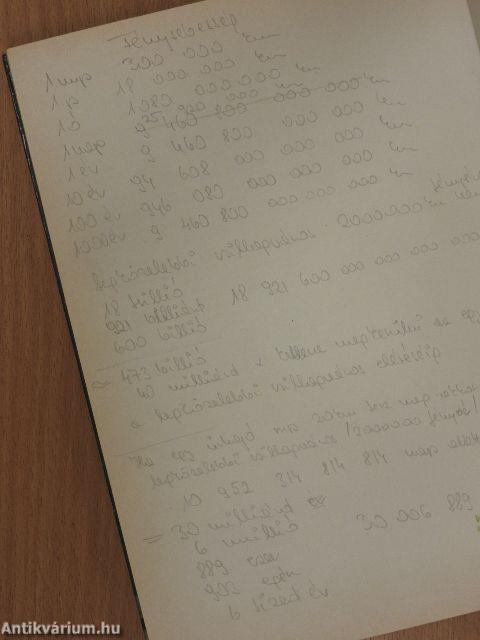 Fénysebesség
1 mp 300 000 km
1 p 18 000 000 km
1 ó 1080 000 000 km
1 nap 25 920 000 000 km
1 év 9 460 800 000 000 km
10 év 94 608 000 000 000 km
100 év 946 080 000 000 000 km
1000 év 9 460 800 000 000 000 km
legközelebbi csillagváros 2000000 fényév
18 trillió
921 billiárd 18 921 600 000 000 000 000
600 billió
473 billió
40 milliárd x kellene megkerülni az
a legközelebbi csillagváros eléréséig
Ha egy űrhajó mp 20 km
legközelebbi csillagváros /2000000 fényév/
10 952 314 814 814 nap alatt
= 30 milliárd
6 millió 30 006 889
889 ezer
902 egész
6 tized év
Antikvárium.hu